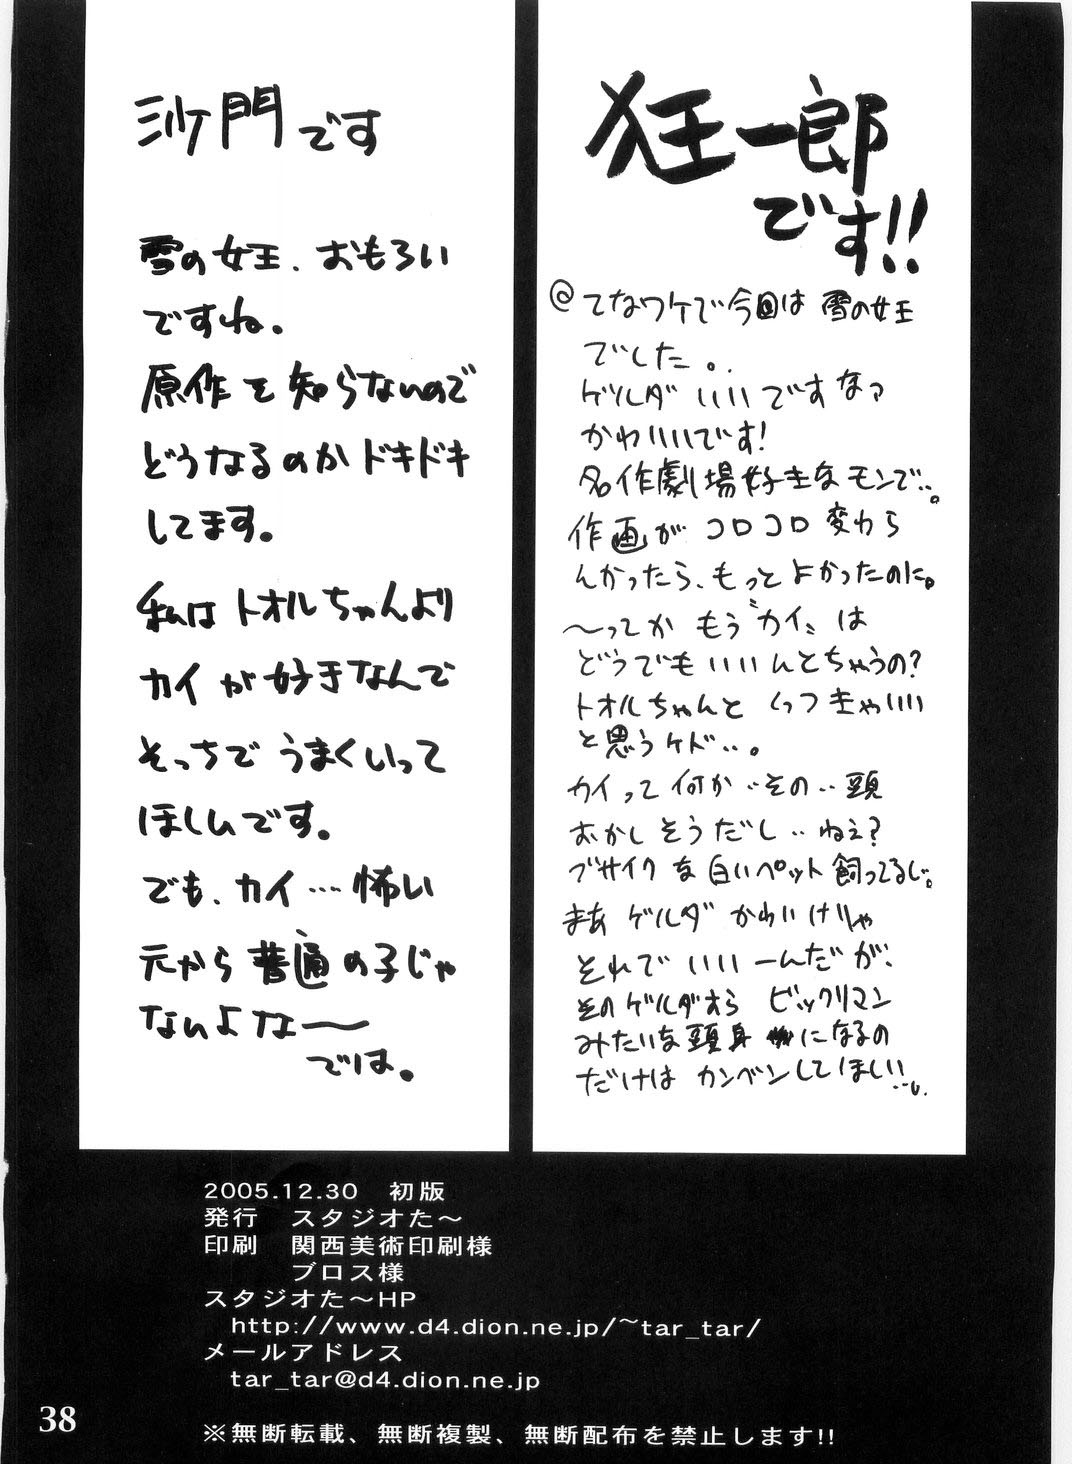 狂一郎
です!!
@てなワケで今回は雪の女王
でした。.
ゲルダいいですなァ
かわいいです!
名作劇場好きなモンで…。
作画がコロコロ変わら
んかったら、もっとよかったのに。
〜ってかもう〝カイ〟は
どうでもいいんとちゃうの?
トオルちゃんとくっつきゃいい
と思うケド…。
カイって何か…その…頭
おかしそうだし…ねぇ?
ブサイクな白いペット飼ってるし。
まあゲルダかわいけりゃ
それでいいーんだが、
そのゲルダすらビックリマン
みたいな頭身になるの
だけはカンベンしてほしい…。
沙門です
雪の女王、おもろい
ですね。
原作を知らないので
どうなるのかドキドキ
してます。
私はトオルちゃんより
カイが好きなんで
そっちでうまくいって
ほしいです。
でも、カイ…怖い
元から普通の子じゃ
ないよなー〜
では。
2005.12.30 初版
発行 スタジオた〜
印刷 関西美術印刷様
ブロス様
スタジオた〜HP
http://www.d4.dion.ne.jp/~tar_tar/
メールアドレス
tar_tar@d4.dion.ne.jp
※無断転載、無断複製、無断配布を禁止します!!
38